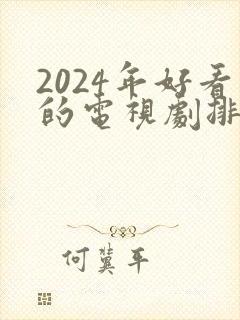 2024年好看
的電視劇排
何冀平